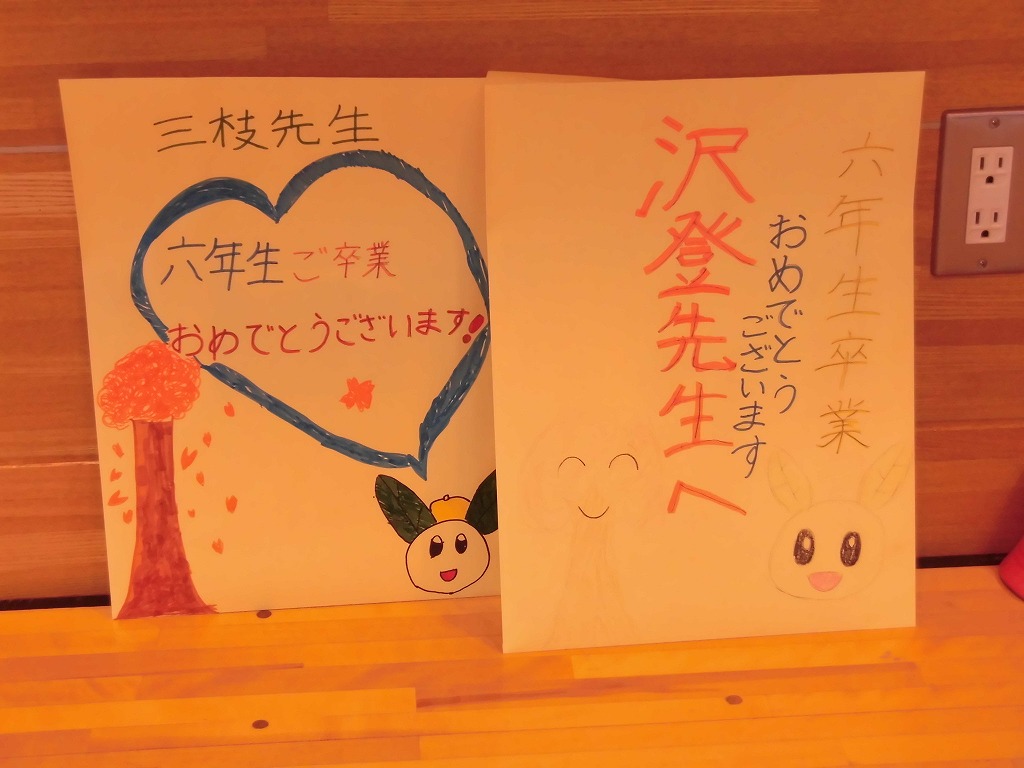 三枝先生
六年生ご卒業
おめでとうございます!
六年生卒業
おめでとう
ございます
沢登先生へ